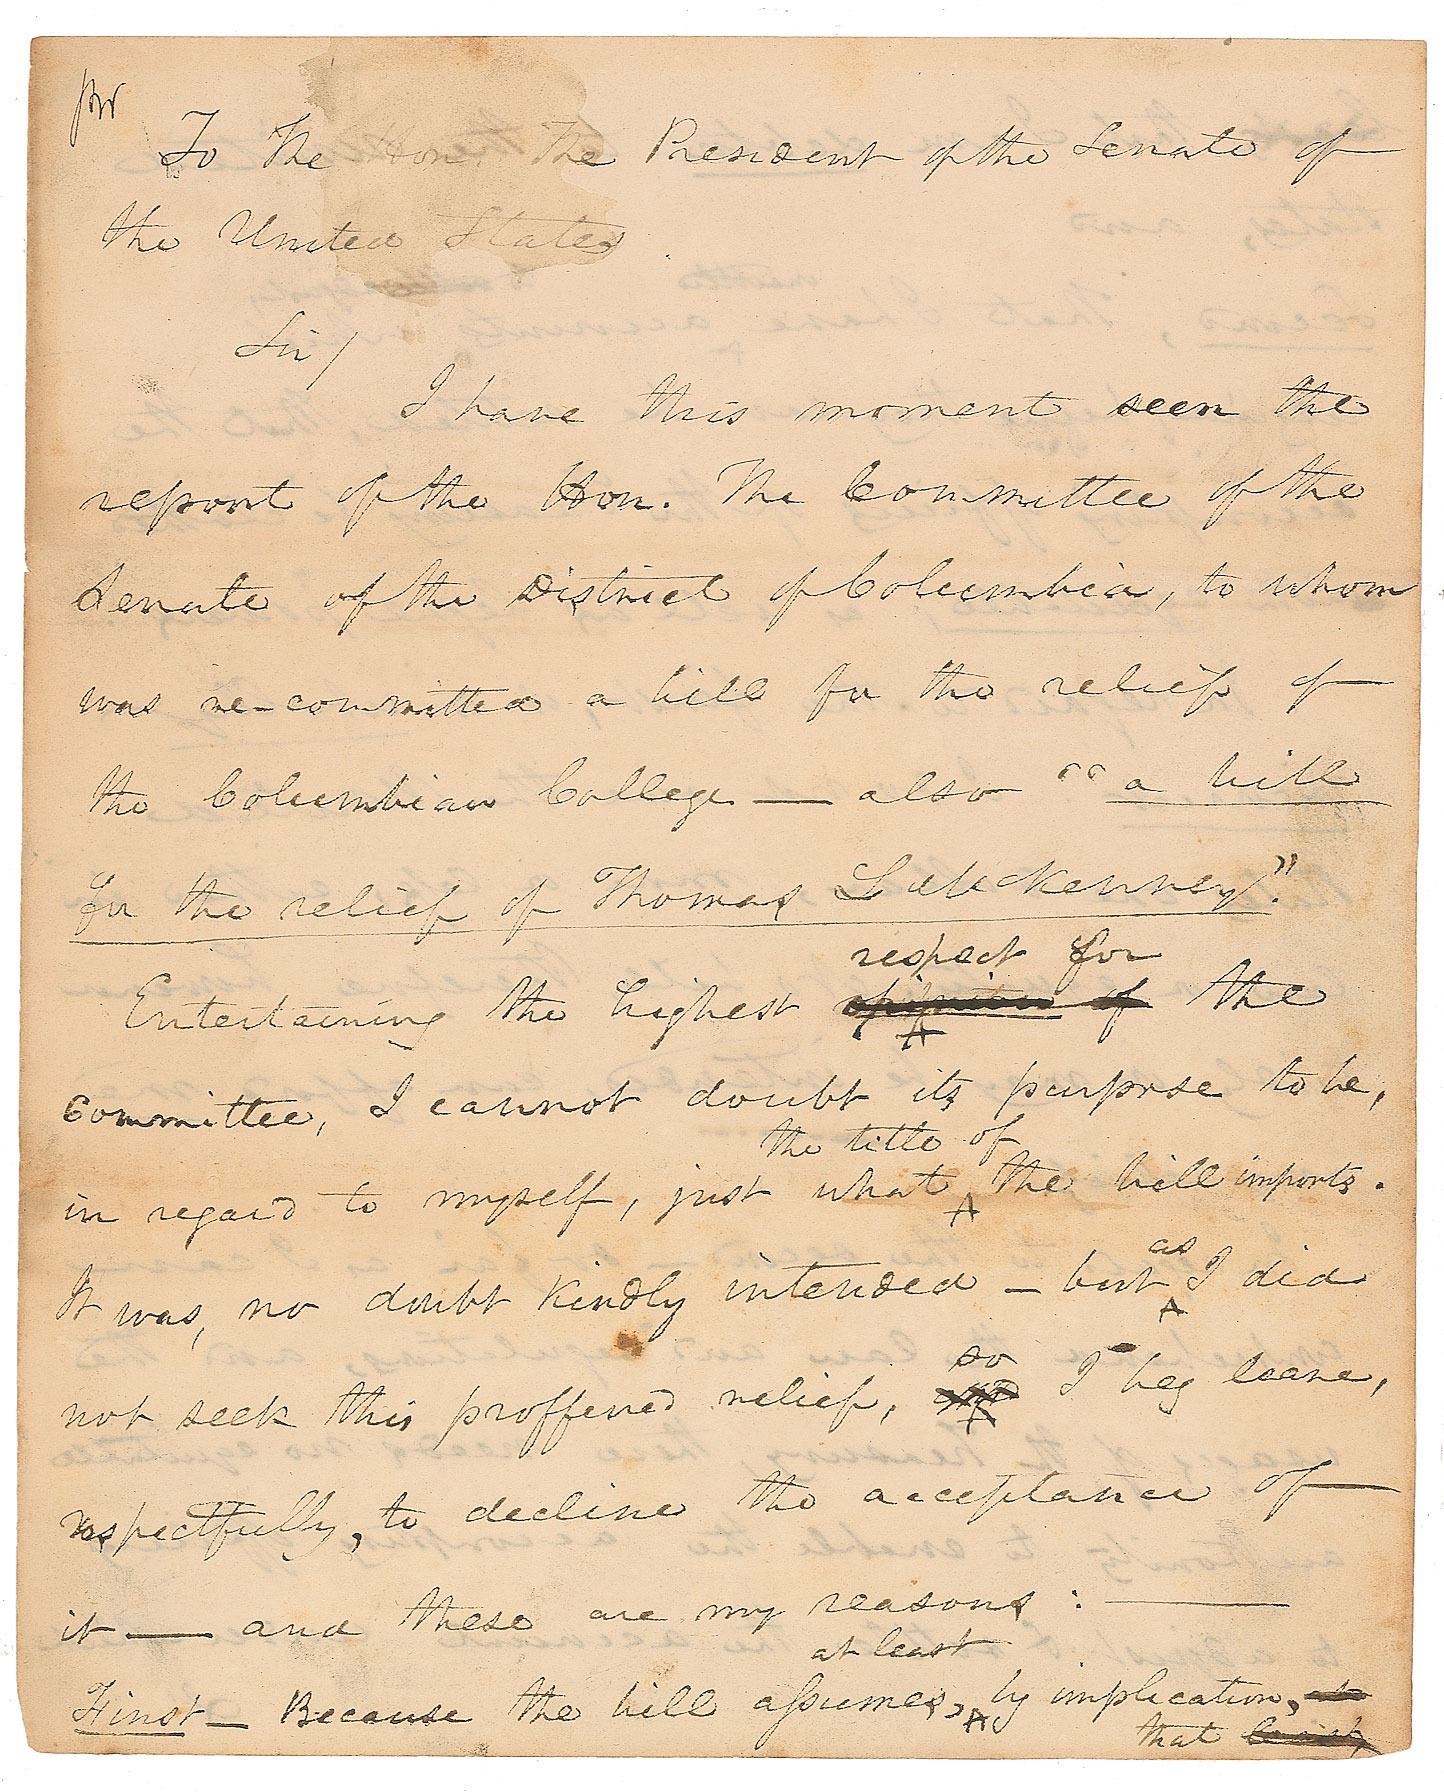 To The Hon. The President of the Senate of
the United States
Sir/
I have this moment seen the
report of the Hon. The Committee of the
Senate of the District of Columbia, to whom
was re-committed a bill for the relief of
the Columbian College — also "a bill
for the relief of Thomas L McKenney."
respect for
Entertaining the highest opinion of the
Committee, I cannot doubt its purpose to be,
the title of
in regard to myself, just what the bill imports.
as
It was, no doubt kindly intended — but I did
so
not seek this proffered relief, and I beg leave,
respectfully, to decline the acceptance of
it — and these are my reasons : —
at least
First — Because the bill assumes, by implication, at
that least,